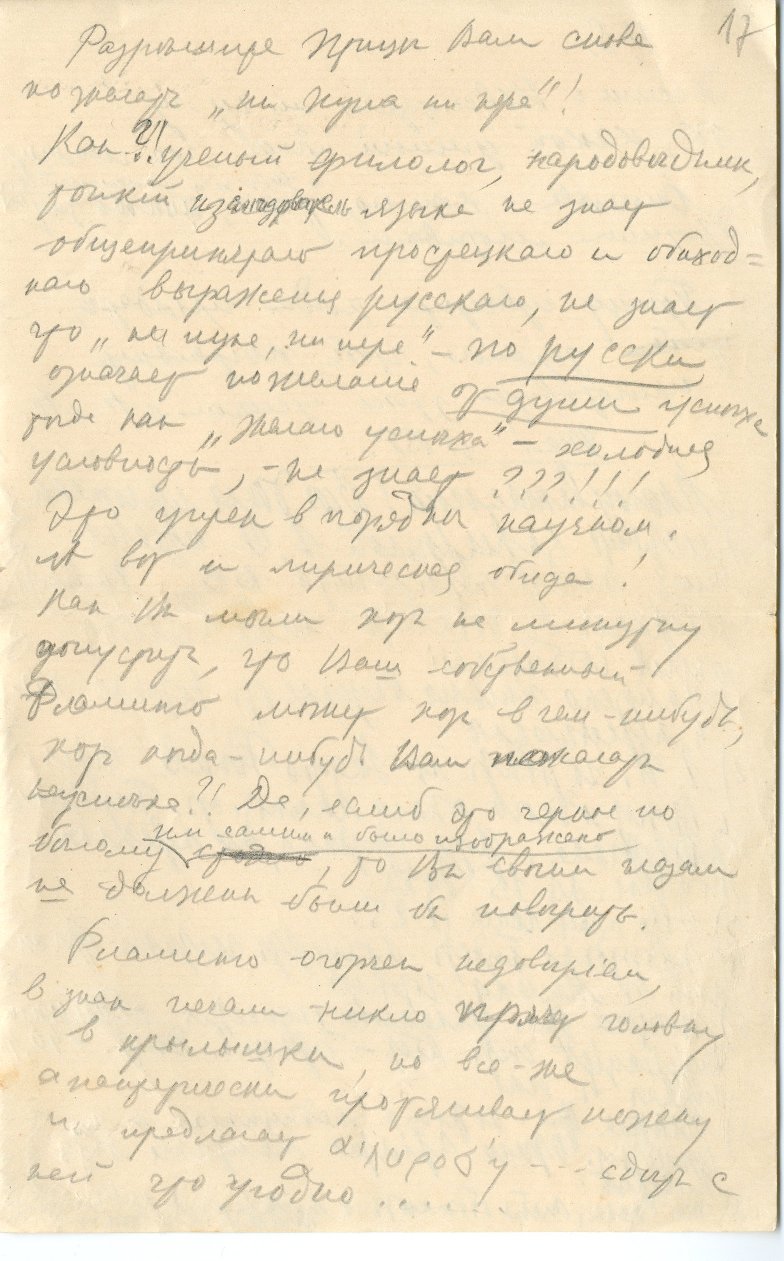 17
Разрѣшите Птицѣ Вам снова
пожелать „ни пуха ни пера"!
Как?!! ученый филолог, народовѣдѣнник,
тонкій языка не знает
общепринятаго простецкаго и обиход=
наго выраженія русскаго, не знает
что „ни пуха, ни пера" – по русски
означает пожеланіе от души успѣха
тогда как „желаю успѣха" – холодная
условность, – не знает???!!!
Это упрек в порядкѣ научном.
А вот и лирическая обида!
Как Вы могли хоть на минутку
допустить, что Ваш собственный
Фламинго может хоть в чем-нибудь,
хоть когда-нибудь Вам пожелать
неуспѣха?! Да, еслиб это черным по
бѣлому им самим и было изображено
, то Вы своим глазам
не должны были бы повѣрить.
Фламинго огорчен недовѣріем,
в знак печали никло прячет головку
в крылышки, но все-же
протягивает ножку
и предлагает ... сдѣлать с
ней что угодно ........